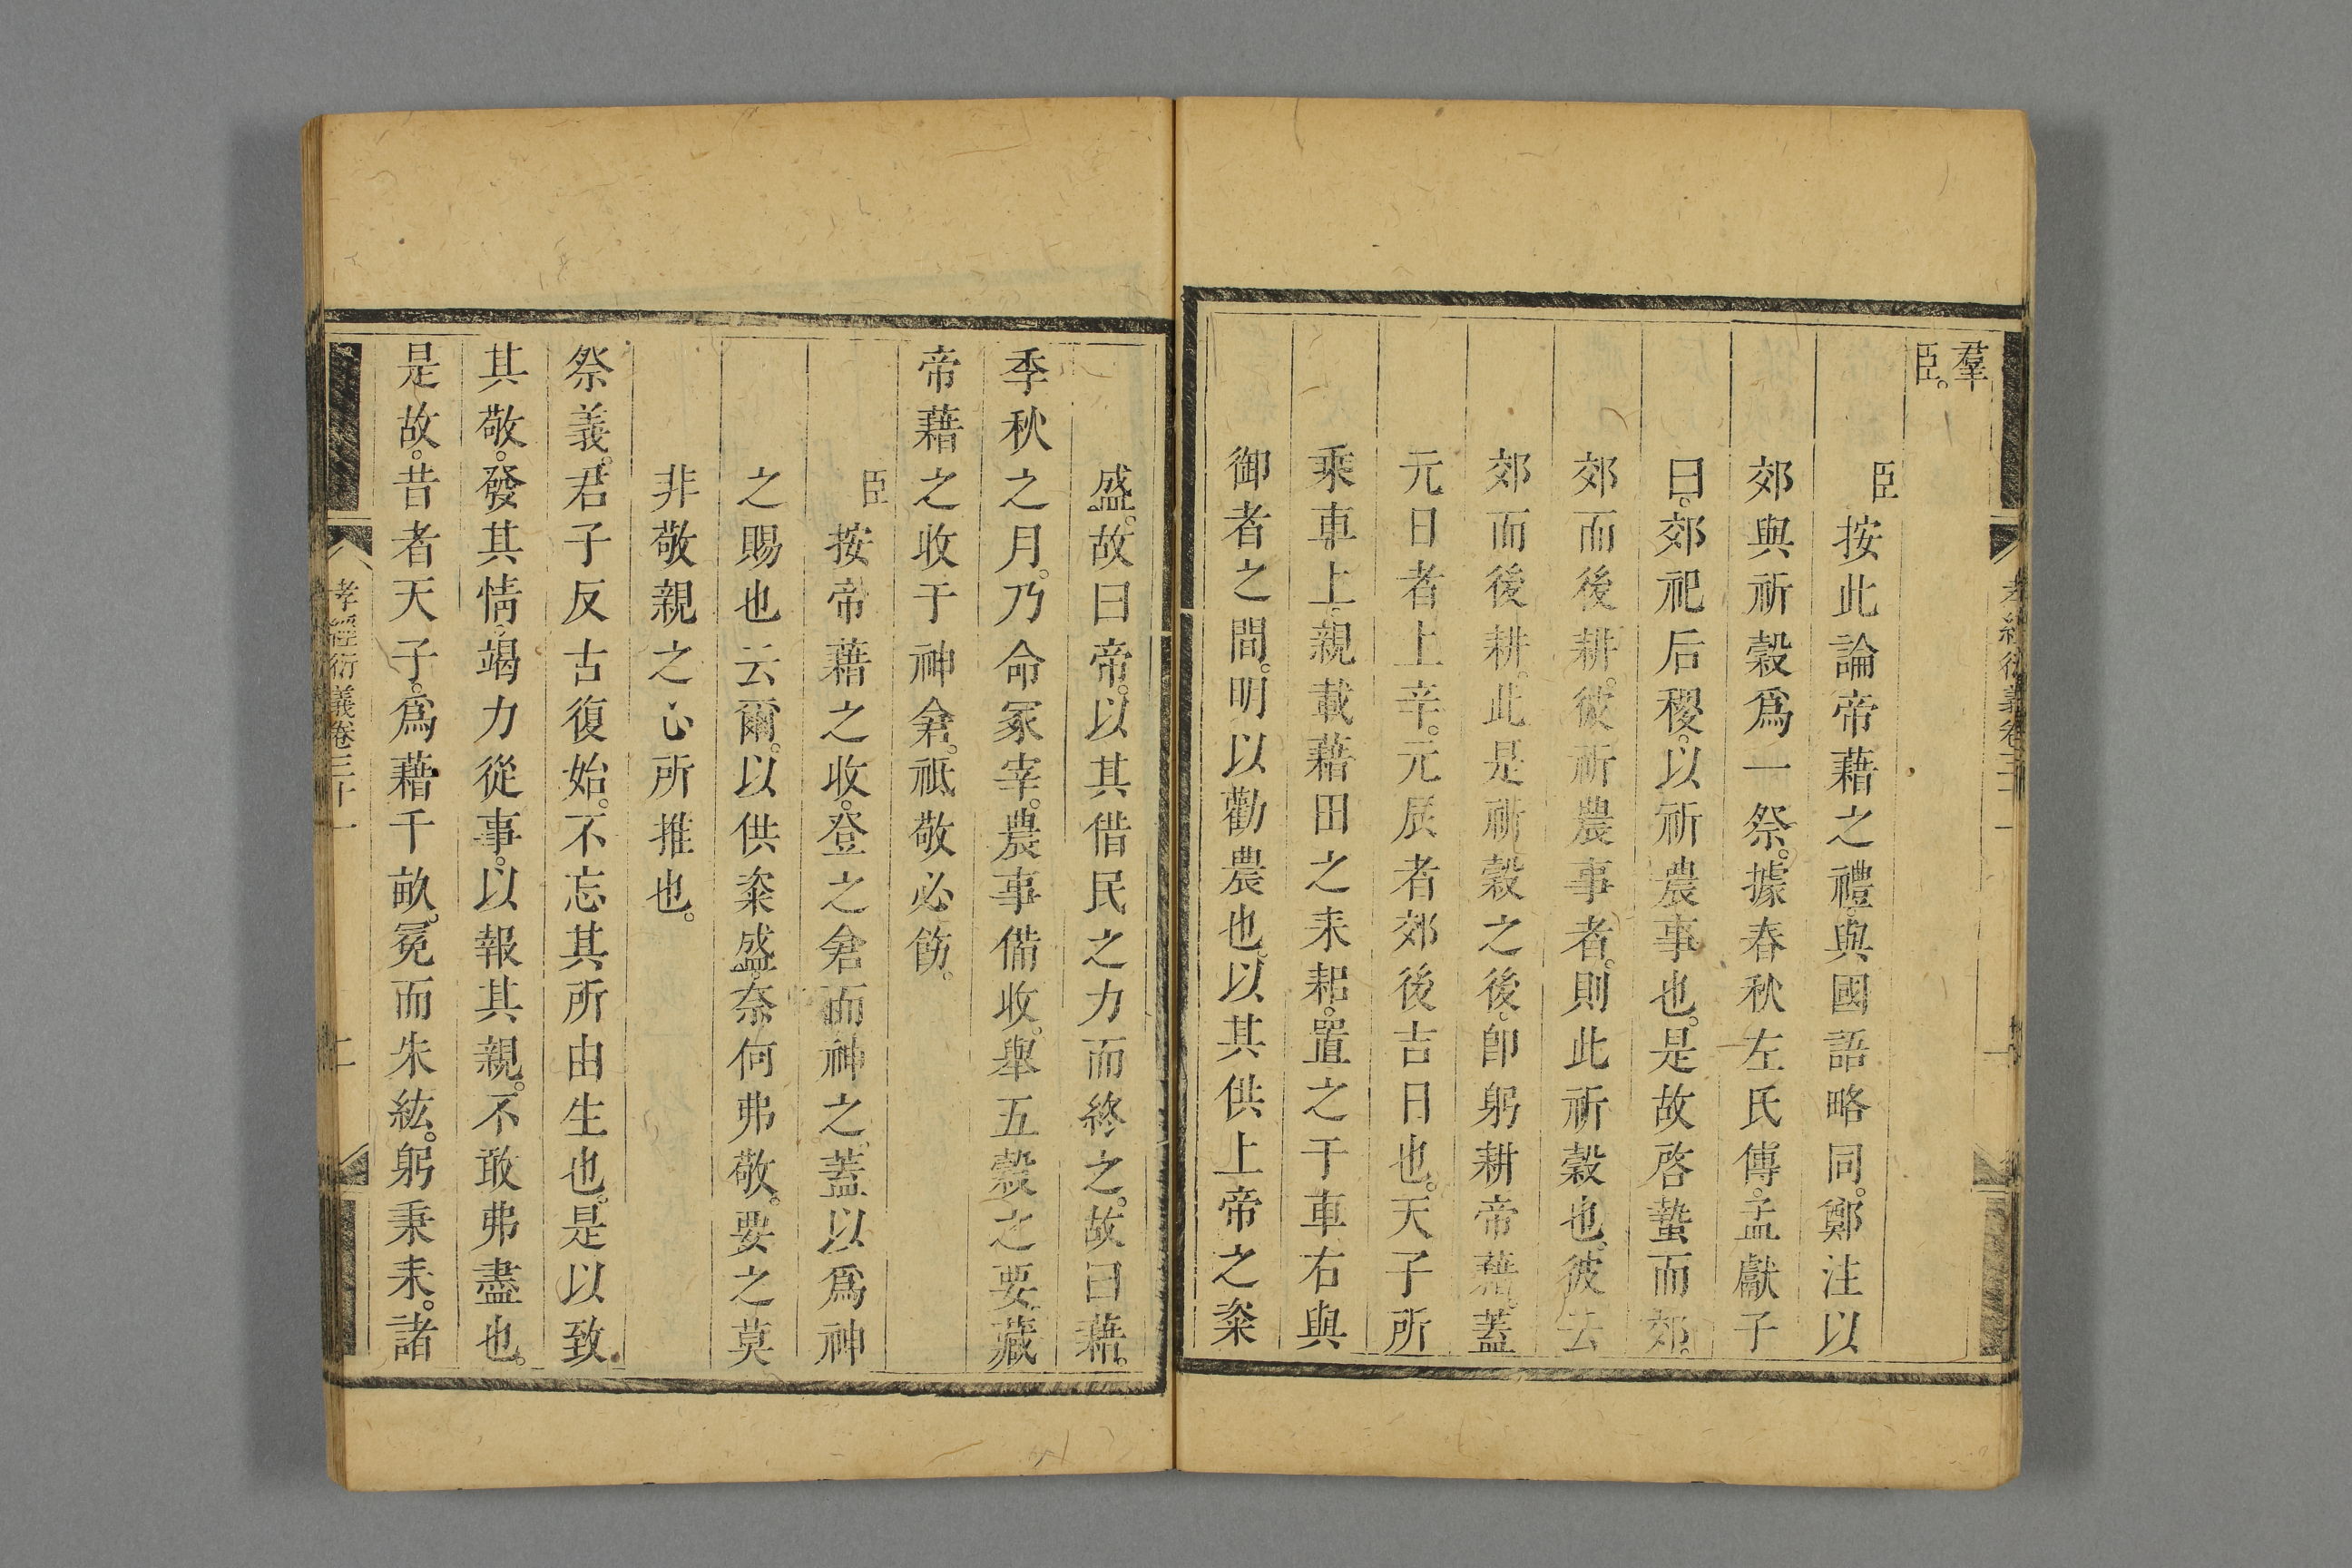 羣
臣。
臣按此論帝藉之禮。與國語略同。鄭注以
郊與祈穀爲一祭。據春秋左氏傳。孟獻子
曰。郊祀后稷。以祈農事也。是故啓蟄而郊。
郊而後耕。彼祈農事者。則此祈穀也。彼云
郊而後耕。此是祈穀之後。卽躬耕帝藉。蓋
元日者上辛。元辰者郊後吉日也。天子所
乘車上。親載藉田之耒耜。置之于車右與
御者之間。明以勸農也。以其供上帝之粢
盛。故曰帝。以其借民之力而終之。故曰藉。
季秋之月。乃命冢宰。農事備收。舉五穀之要。藏
帝藉之收于神倉。祗敬必飭。
臣按帝藉之收。登之倉而神之。蓋以爲神
之賜也云爾。以供粢盛。奈何弗敬。要之莫
非敬親之心所推也。
祭義。君子反古復始。不忘其所由生也。是以致
其敬。發其情。竭力從事。以報其親。不敢弗盡也。
是故。昔者天子。爲藉千畝。冕而朱紘。躬秉耒。諸
孝經衍義卷三十一
二